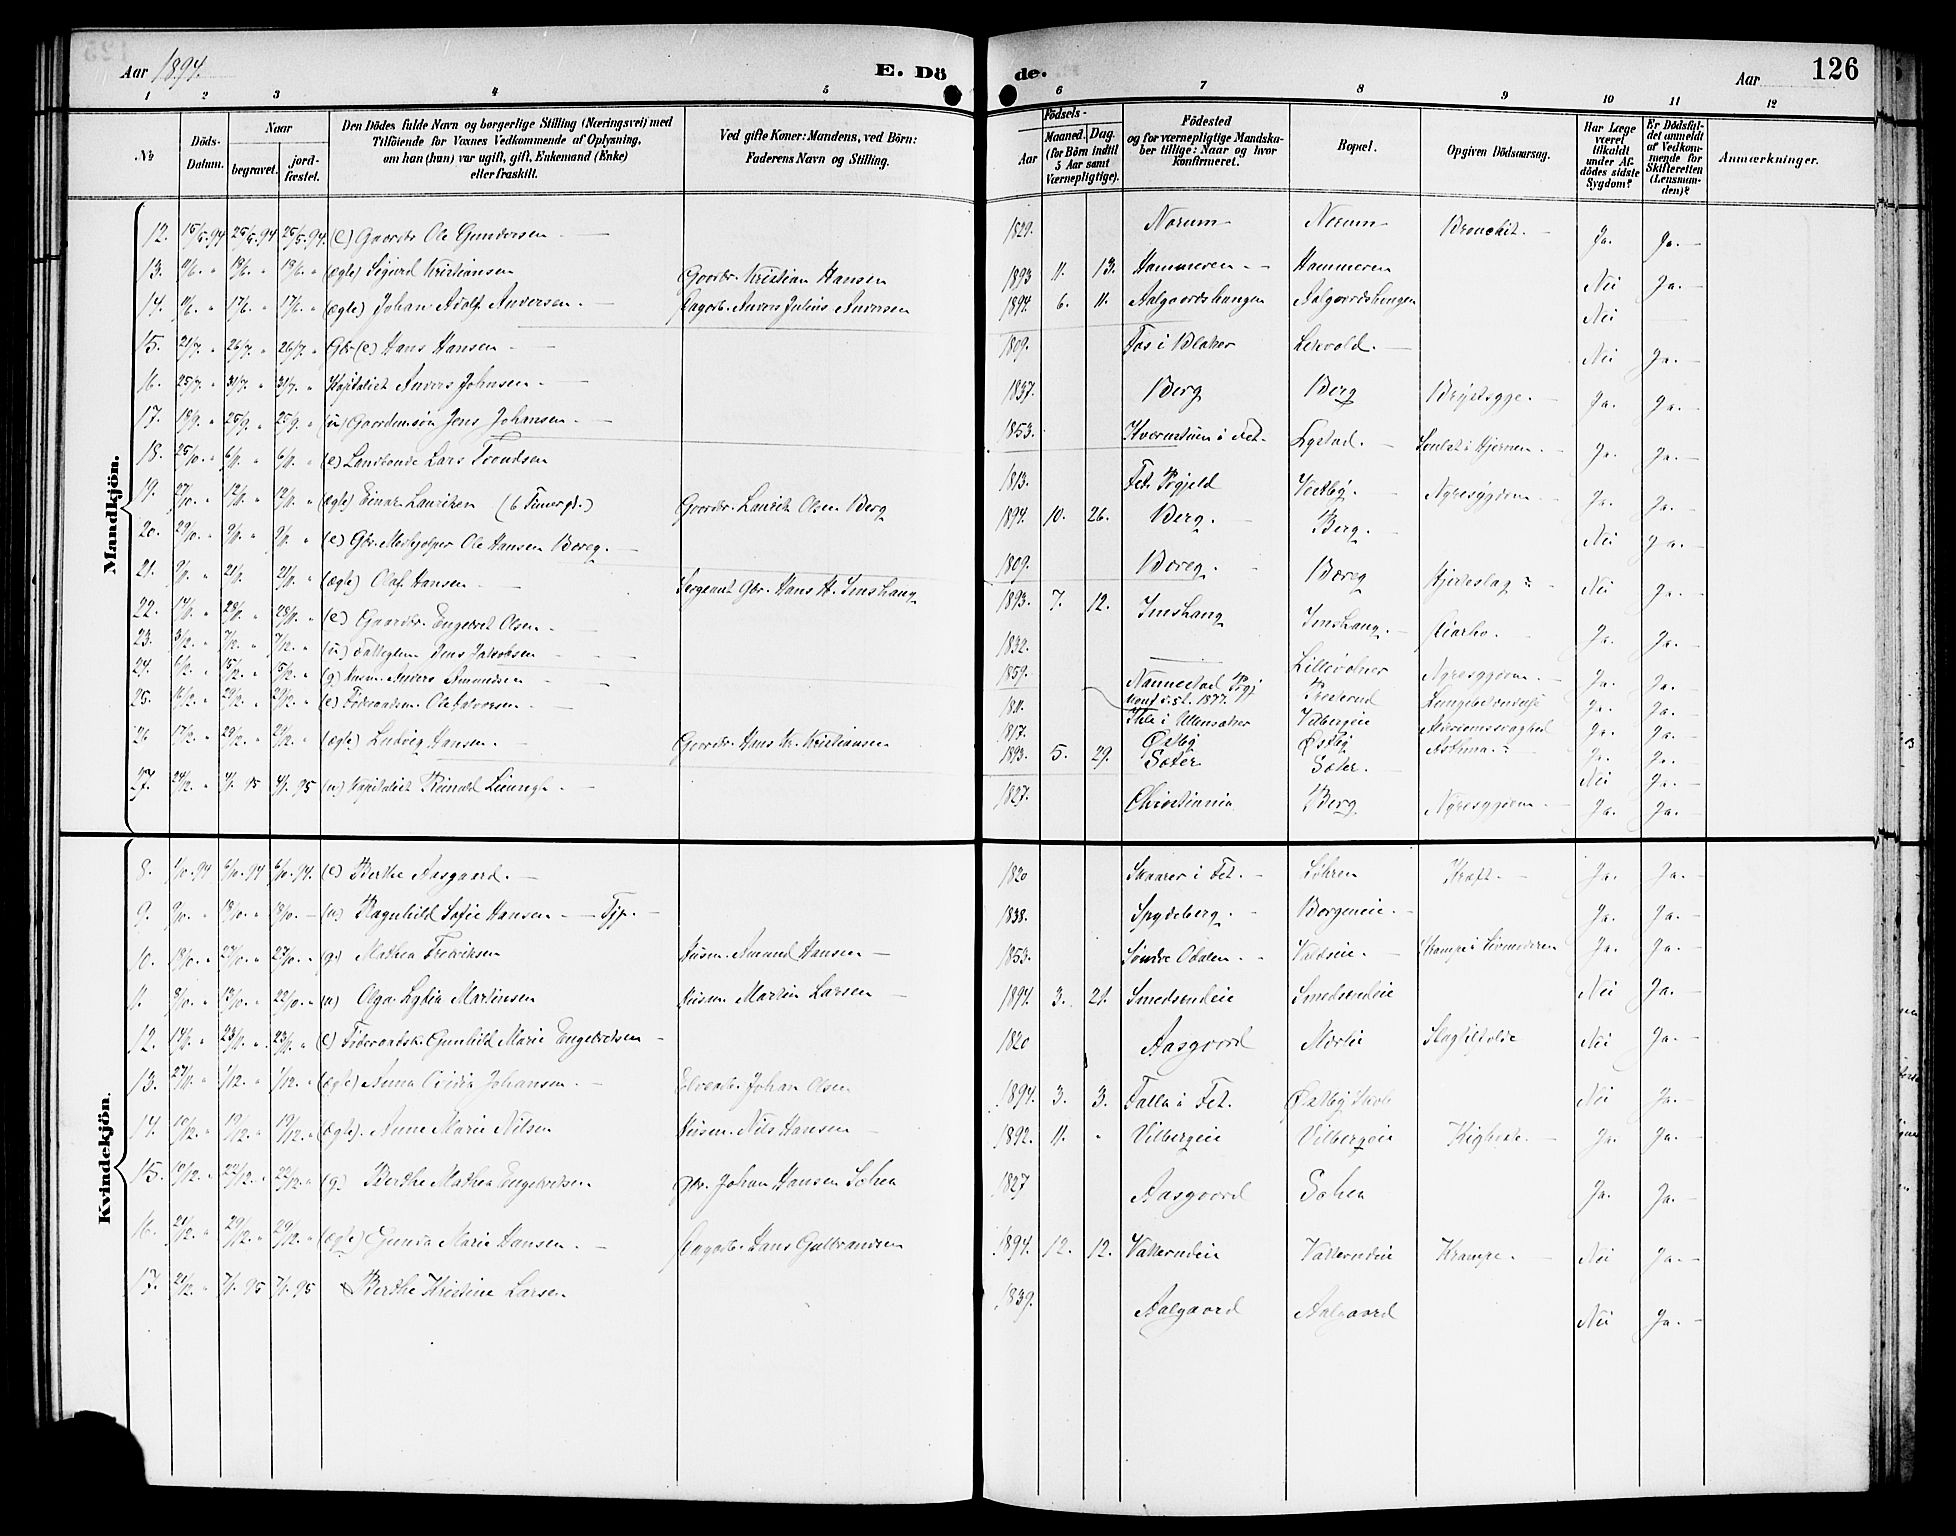 Aar 1894.
E. Dö
de.
Aar
126
1 2 3 4 5
6 7 8 9 10 11 12
№
Döds-Datum.
Naar
begravet.
jordfæstet.
Den Dödes fulde Navn og borgerlige Stilling (Næringsvei) med Tilföiende for Voxnes Vedkommende af Oplysning, om han (hun) var ugift, gift, Enkemand (Enke) eller fraskilt.
Ved gifte Koner: Mandens, ved Börn: Faderens Navn og Stilling.
Födsels-
Aar
Maaned. Dag.
(for Börn indtil 5 Aar samt Værnepligtige).
Födested og for værnepligtige Mandskaber tillige: Naar og hvor Konfirmeret.
Bopæl.
Opgiven Dödsaarsag.
Har Læge været tilkaldt under Afdödes sidste Sygdom?
Er Dödsfaldet anmeldt af Vedkommende for Skifteretten (Lensmanden)?
Anmærkninger.
Mandkjön.
12. 15/5.94 25/5.94 25/5.94. (e) Gaardbr. Ole Gundersen 1829. Norum Norum Bronchit. Ja. Ja.
13. (ægte) Sigurd Kristiansen Gaardbr. Kristian Hansen 1893 11. 13. Hammeren Hammeren Nei Ja.
14. (ægte) Johan Adolf Andersen. Dagarb. Anders Julius Andersen 1894. 6. 11. Aalgaardshaugen Aalgaardshaugen Nei
15. 21/7. 26/7. 26/7. Gbr (e) Hans Hansen 1809. Fos i Blaker Nei Ja.
16. 25/7. 31/7. 31/7. Kapitalist Anders Johnsen. 1837. Berg Berg Brystsyge. Ja. Ja.
17. 18/9. 25/9. 25/9. (u) Gaardmsøn Jens Johansen. 1853. i Fet. Ja. Ja.
18. 25/10. 6/11. 6/11. (e) Landbonde Lars Trondsen 1813. Fet Prgjeld Vestby. Nyresygdom Ja. Ja.
19. 27/10. 12/11. 12/11. (ægte) Einar Lauritzen (6 Timer gl.) Gaardbr. Laurits Olsen Berg 1894. 10. 26. Berg. Berg. Nei Ja.
20. 29/10. 9/11. 9/11. (e) Gbr. Medhjelper Ole Hansen Bareg. 1809. Bareg. Bareg Hjerteslag Nei Ja.
21. 9/11. 21/11. 21/11. (ægte) Olaf Hansen Sergeant Gbr. Hans H. Imshaug 1893. 7. 12. Imshaug Imshaug. Ja. Ja.
22. 28/11. 28/11. (e) Gaardbr. Engebret Olsen. 1832. Lillevolner Nyresygdom. Ja. Ja.
23. 3/12. 7/12. 7/12. (u) Fattiglem Jens Jakobsen 1859. Nannestad Prgj. 1877. Ja. Ja.
24. 6/12. 15/12. 15/12. (g) Husm. Anders Amundsen 1811. i Ullensaker Vilbergeie Ja. Ja.
25. 16/12. 24/12. 24/12. (e) Føderaadsm. Ole Halvorsen. 1817. Østby Østby Asthma. Ja. Ja.
26. 17/12. 29/12. (ægte) Ludvig Hansen. Gaardbr. Hans Kr. Kristiansen 1893. 5. 29. Sæter Sæter. Nei Ja.
27. 24/12. 4/1. 95 4/1. 95 Kapitalist Reinold 1827. Christiania Berg Nyresygdom Ja. Ja.
Kvindekjön.
8. 1/10.94 6/10.94 6/10.94. (e) Berthe Aasgaard. 1820 Skaarer i Fet. Løhren Kræft. Ja. Ja.
9. 9/10. 18/10. 18/10. (u) Ragnhild Sofie Hansen. Tjp. 1838. Spydeberg. Borgeneie. Ja. Ja.
10. 18/10. 27/10. 27/10. (g) Mathea Fredriksen Husm. Amund Hansen 1853. Søndre Odalen. Valdseie. Krampe i Livmoderen Ja. Ja.
11. 8/10. 13/10. 22/10. (u) Olga Lydia Martinsen Husm. Martin Larsen 1894. 3. 21. Smedsendeie Smedsendeie Nei Ja.
12. 14/11. 23/11. 23/11. (e) Føderaadsk. Gunhild Marie Engebretsen 1820 Aasgaard Slagtilfælde Nei Ja.
13. 27/11. 1/12. 1/12. (ægte) Anna Johansen. Johan Olsen 1894. 3. 3. Falla i Fet. Østby Skole Nei Ja.
14. 10/12. 19/12. 19/12. (ægte). Anne Marie Nilsen Husm. Nils Hansen 1892. 11. Vilbergeie Vilbergeie Kighoste. Ja. Ja.
15. 10/12. 22/12. 22/12. (g) Berthe Mathea Engebretsen Gbr. Johan Hansen Sohea 1827 Aasgaard Sohea Ja. Ja.
16. 21/12. 29/12. 29/12. (ægte) Gunda Marie Hansen. Dagarb. Hans Gulbrandsen 1894. 12. 12. Valterudeie Valterudeie Krampe. Nei Ja.
17. 21/12. 7/1. 95 7/1. 95 Berthe Kristine Larsen 1839. Aalgaard Aalgaard Nei Ja.